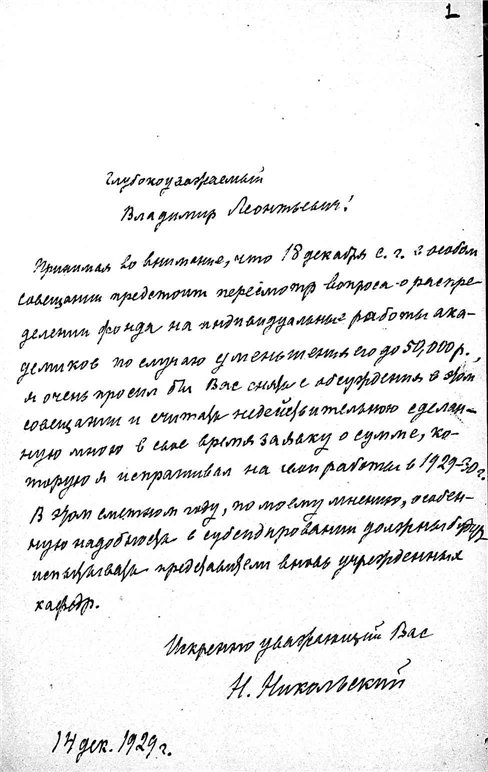 1
Глубокоуважаемый
Владимир Леонтьевич!
Принимая во внимание, что 18 декабря с. г. в особом
совещании предстоит пересмотр вопроса о распре
делении фонда на индивидуальные работы ака-
демиков по случаю уменьшения его до 50,000 р.,
я очень просил бы Вас снять с обсуждения в этом
совещании и считать недействительною сделан-
ную мною в свое время заявку о сумме, ко-
торую я испрашивал на свои работы в 1929-30 г.
В этом сметном году, по моему мнению, особен-
ную надобность в субсидировании должны будут
испытывать представители вновь учрежденных
кафедр.
Искренно уважающий Вас
Н. Никольский
14 дек. 1929 г.